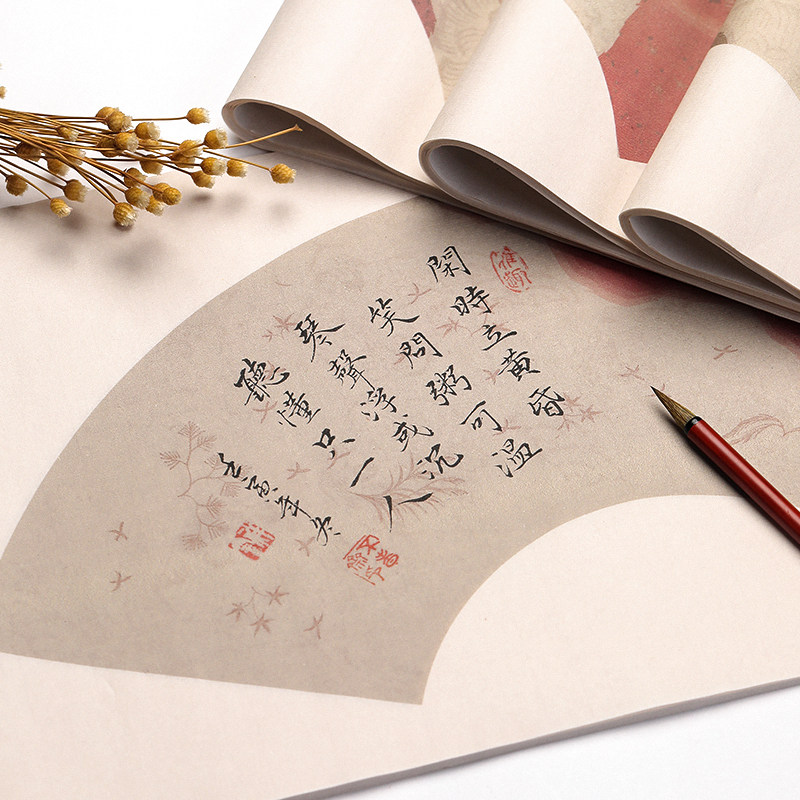 閑時立黃昏
笑問粥可溫
琴聲浮或沉
聽懂只一人
壬寅年冬